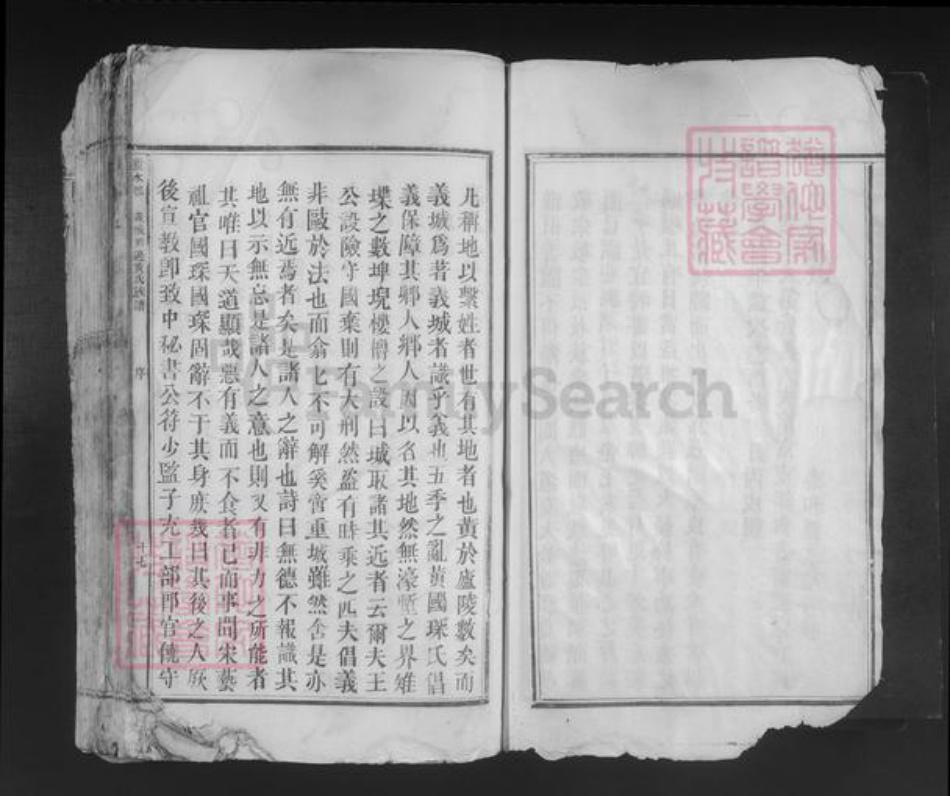 凡稱地以繫姓者世有其地者也黃於盧陵數矣而
義城爲著義城者識乎義也五季之亂黃國琛氏倡
義保障其鄉人鄉人因以名其地然無濠塹之界雉
堞之數埤堄樓櫓之設曰城取諸其近者云爾夫王
公設險守國棄則有大刑然盜有時乘之匹夫倡義
非敺於法也而翕七不可解奚啻重城雖然舍是亦
無有近焉者矣是諸人之辭也詩曰無德不報識其
地以示無忘是諸人之意也則又有非力之所能者
其唯曰天道顯哉惡有義而不食者已而事聞宋藝
祖官國琛國琛固辭不干其身庶幾曰其後之人厥
後宣教郎致中秘書公符少監子充工部郎官僥守
序
十七
FamilySearch